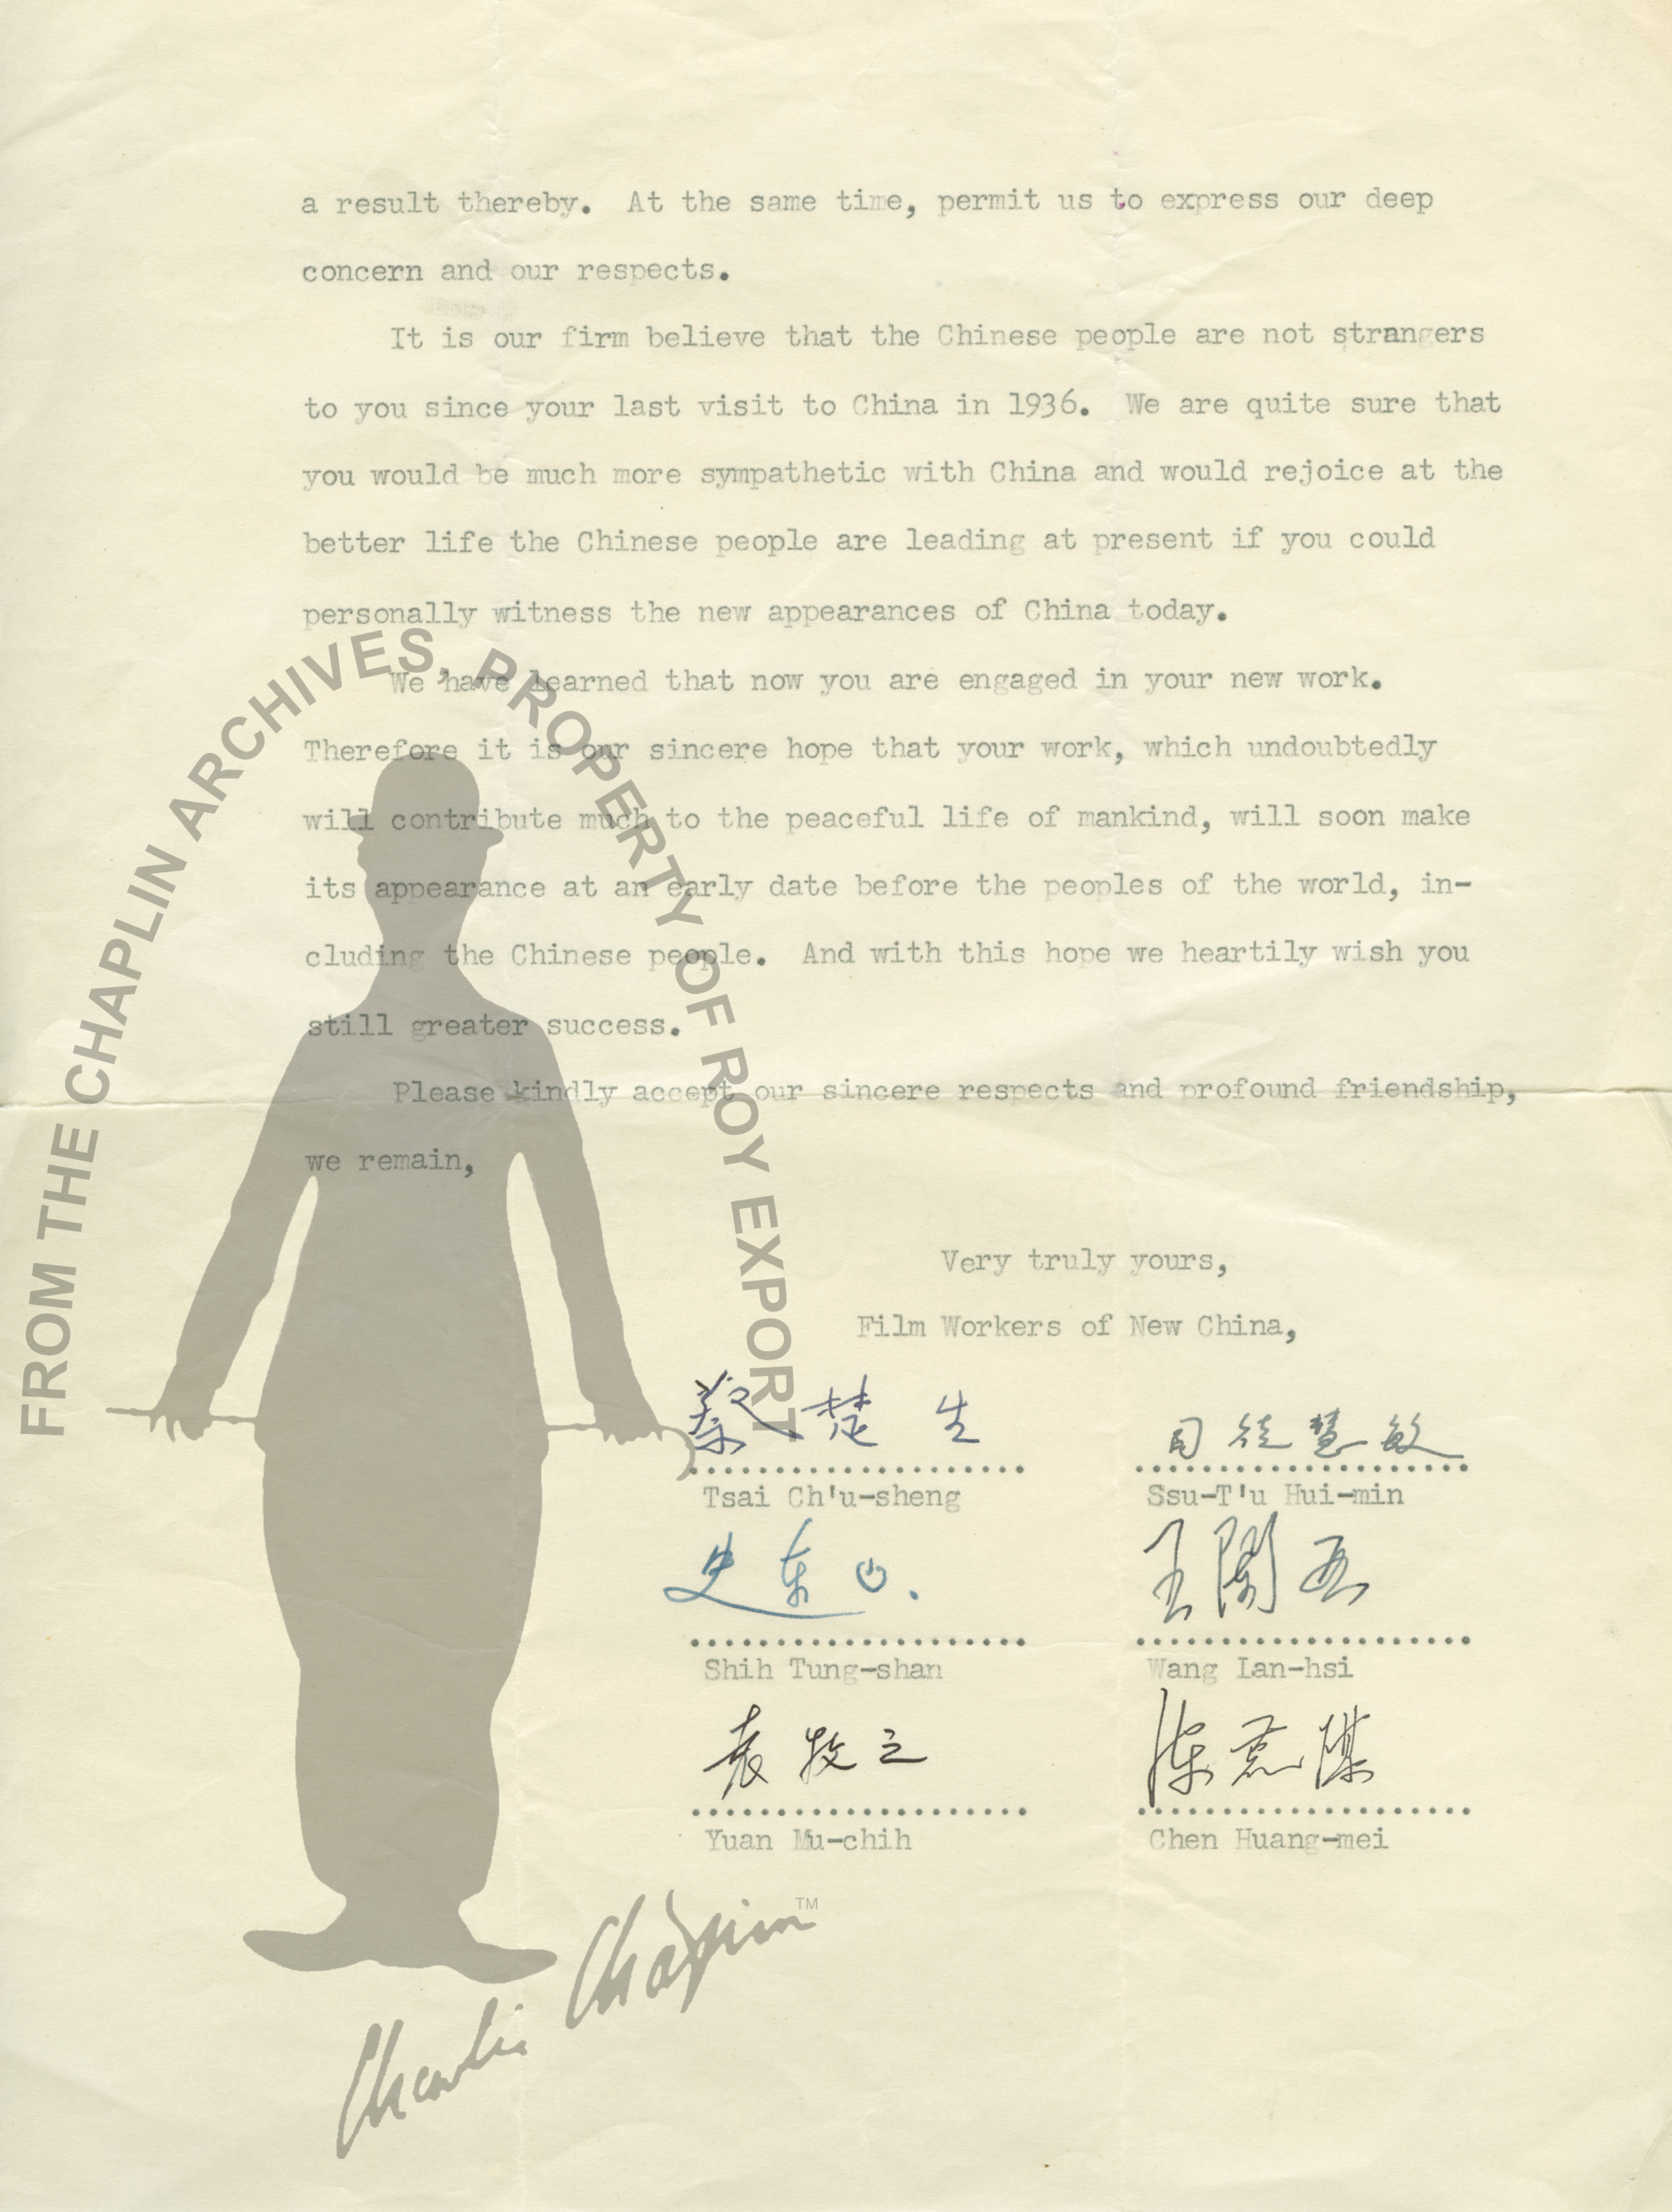 a result thereby. At the same time, permit us to express our deep
concern and our respects.
It is our firm believe that the Chinese people are not strangers
to you since your last visit to China in 1936. We are quite sure that
you would be much more sympathetic with China and would rejoice at the
better life the Chinese people are leading at present if you could
personally witness the new appearances of China today.
We have learned that now you are engaged in your new work.
Therefore it is our sincere hope that your work, which undoubtedly
will contribute much to the peaceful life of mankind, will soon make
its appearance at an early date before the peoples of the world, in-
cluding the Chinese people. And with this hope we heartily wish you
still greater success.
Please kindly accept our sincere respects and profound friendship,
we remain,
Very truly yours,
Film Workers of New China,
蔡楚生 司徒慧敏
Tsai Ch'u-sheng Ssu-T'u Hui-min
史东山. 王闌西
Shih Tung-shan Wang Lan-hsi
袁牧之 陈荒煤
Yuan Mu-chih Chen Huang-mei
FROM THE CHAPLIN ARCHIVES, PROPERTY OF ROY EXPORT
Charlie Chaplin™